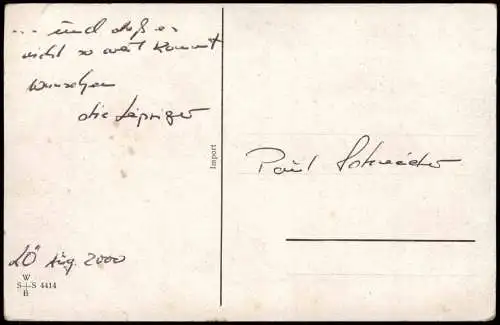 ... und daß es
nicht so weit kommt
wünschen
die Leipziger
Import
Paul Schneider
LÖ Aug. 2000
W
S+S 4414
B